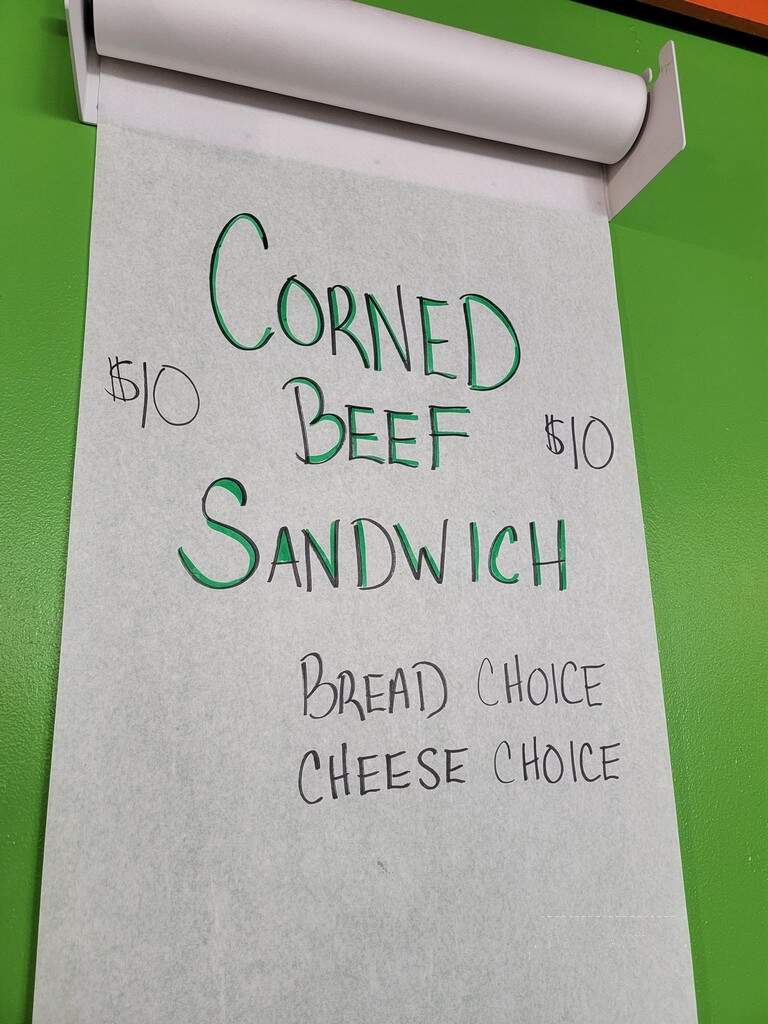 CORNED
$10 BEEF $10
SANDWICH
BREAD CHOICE
CHEESE CHOICE